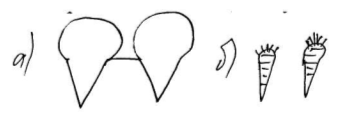 а) б)